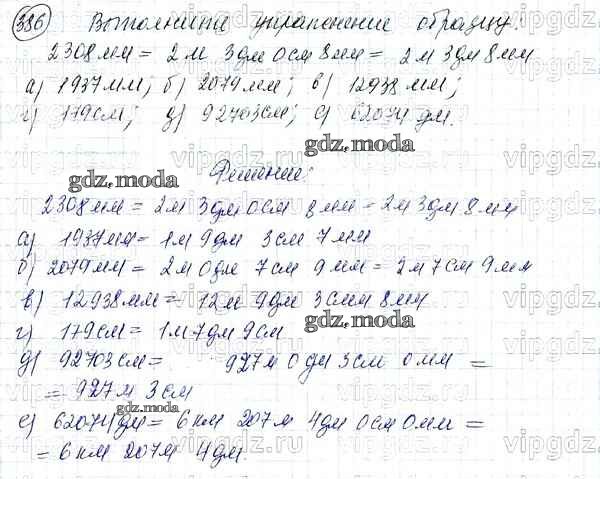 386 Выполните упражнение образцу:
2308мм = 2м 3дм 0см 8мм = 2м 3дм 8мм
а) 1937мм; б) 2079мм; в) 12938мм;
г) 179см; д) 92703см; е) 62074дм.
gdz.moda
Решение:
gdz.moda
2308мм = 2м 3дм 0см 8мм = 2м 3дм 8мм
а) 1937мм = 1м 9дм 3см 7мм
б) 2079мм = 2м 0дм 7см 9мм = 2м 7см 9мм
в) 12938мм = 12м 9дм 3см 8мм
gdz.moda
г) 179см = 1м 7дм 9см
д) 92703см = 927м 0дм 3см 0мм =
= 927м 3см
gdz.moda
е) 62074дм = 6км 207м 4дм 0см 0мм =
= 6км 207м 4дм.